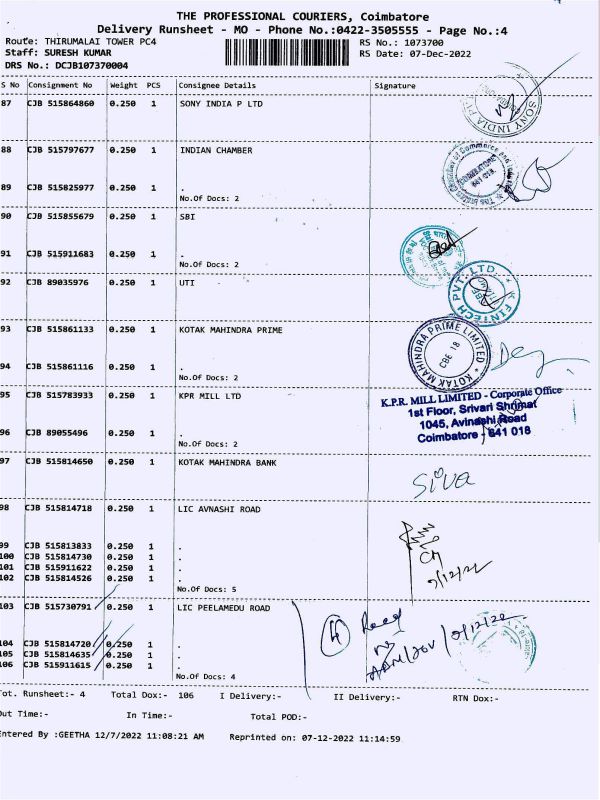 THE PROFESSIONAL COURIERS, Coimbatore
Delivery Runsheet - MO - Phone No.:0422-3505555 - Page No.:4
Route: THIRUMALAI TOWER PC4
RS No.: 1073700
Staff: SURESH KUMAR
RS Date: 07-Dec-2022
DRS No.: DCJB107370004
S No Consignment No Weight PCS Consignee Details Signature
87 CJB 515864860 0.250 1 SONY INDIA P LTD
SONY INDIA
88 CJB 515797677 0.250 1 INDIAN CHAMBER
COIMBATORE
641 018
89 CJB 515825977 0.250 1 .
No.Of Docs: 2
90 CJB 515855679 0.250 1 SBI
91 CJB 515911683 0.250 1 .
No.Of Docs: 2
92 CJB 89035976 0.250 1 UTI
K FINTECH PVT. LTD.
93 CJB 515861133 0.250 1 KOTAK MAHINDRA PRIME
KOTAK MAHINDRA PRIME LIMITED
CBE 18
94 CJB 515861116 0.250 1 .
No.Of Docs: 2
95 CJB 515783933 0.250 1 KPR MILL LTD
K.P.R. MILL LIMITED - Corporate Office
1st Floor, Srivari Shrimat
1045, Avinashi Road
Coimbatore - 641 018
96 CJB 89055496 0.250 1 .
No.Of Docs: 2
97 CJB 515814650 0.250 1 KOTAK MAHINDRA BANK
Siva
98 CJB 515814718 0.250 1 LIC AVNASHI ROAD
99 CJB 515813833 0.250 1 .
100 CJB 515814730 0.250 1 .
101 CJB 515911622 0.250 1 .
102 CJB 515814526 0.250 1 .
No.Of Docs: 5
103 CJB 515730791 0.250 1 LIC PEELAMEDU ROAD
4
104 CJB 515814720 0.250 1 .
105 CJB 515814635 0.250 1 .
106 CJB 515911615 0.250 1 .
No.Of Docs: 4
Tot. Runsheet:- 4 Total Dox:- 106 I Delivery:- II Delivery:- RTN Dox:-
Out Time:- In Time:- Total POD:-
Entered By :GEETHA 12/7/2022 11:08:21 AM Reprinted on: 07-12-2022 11:14:59